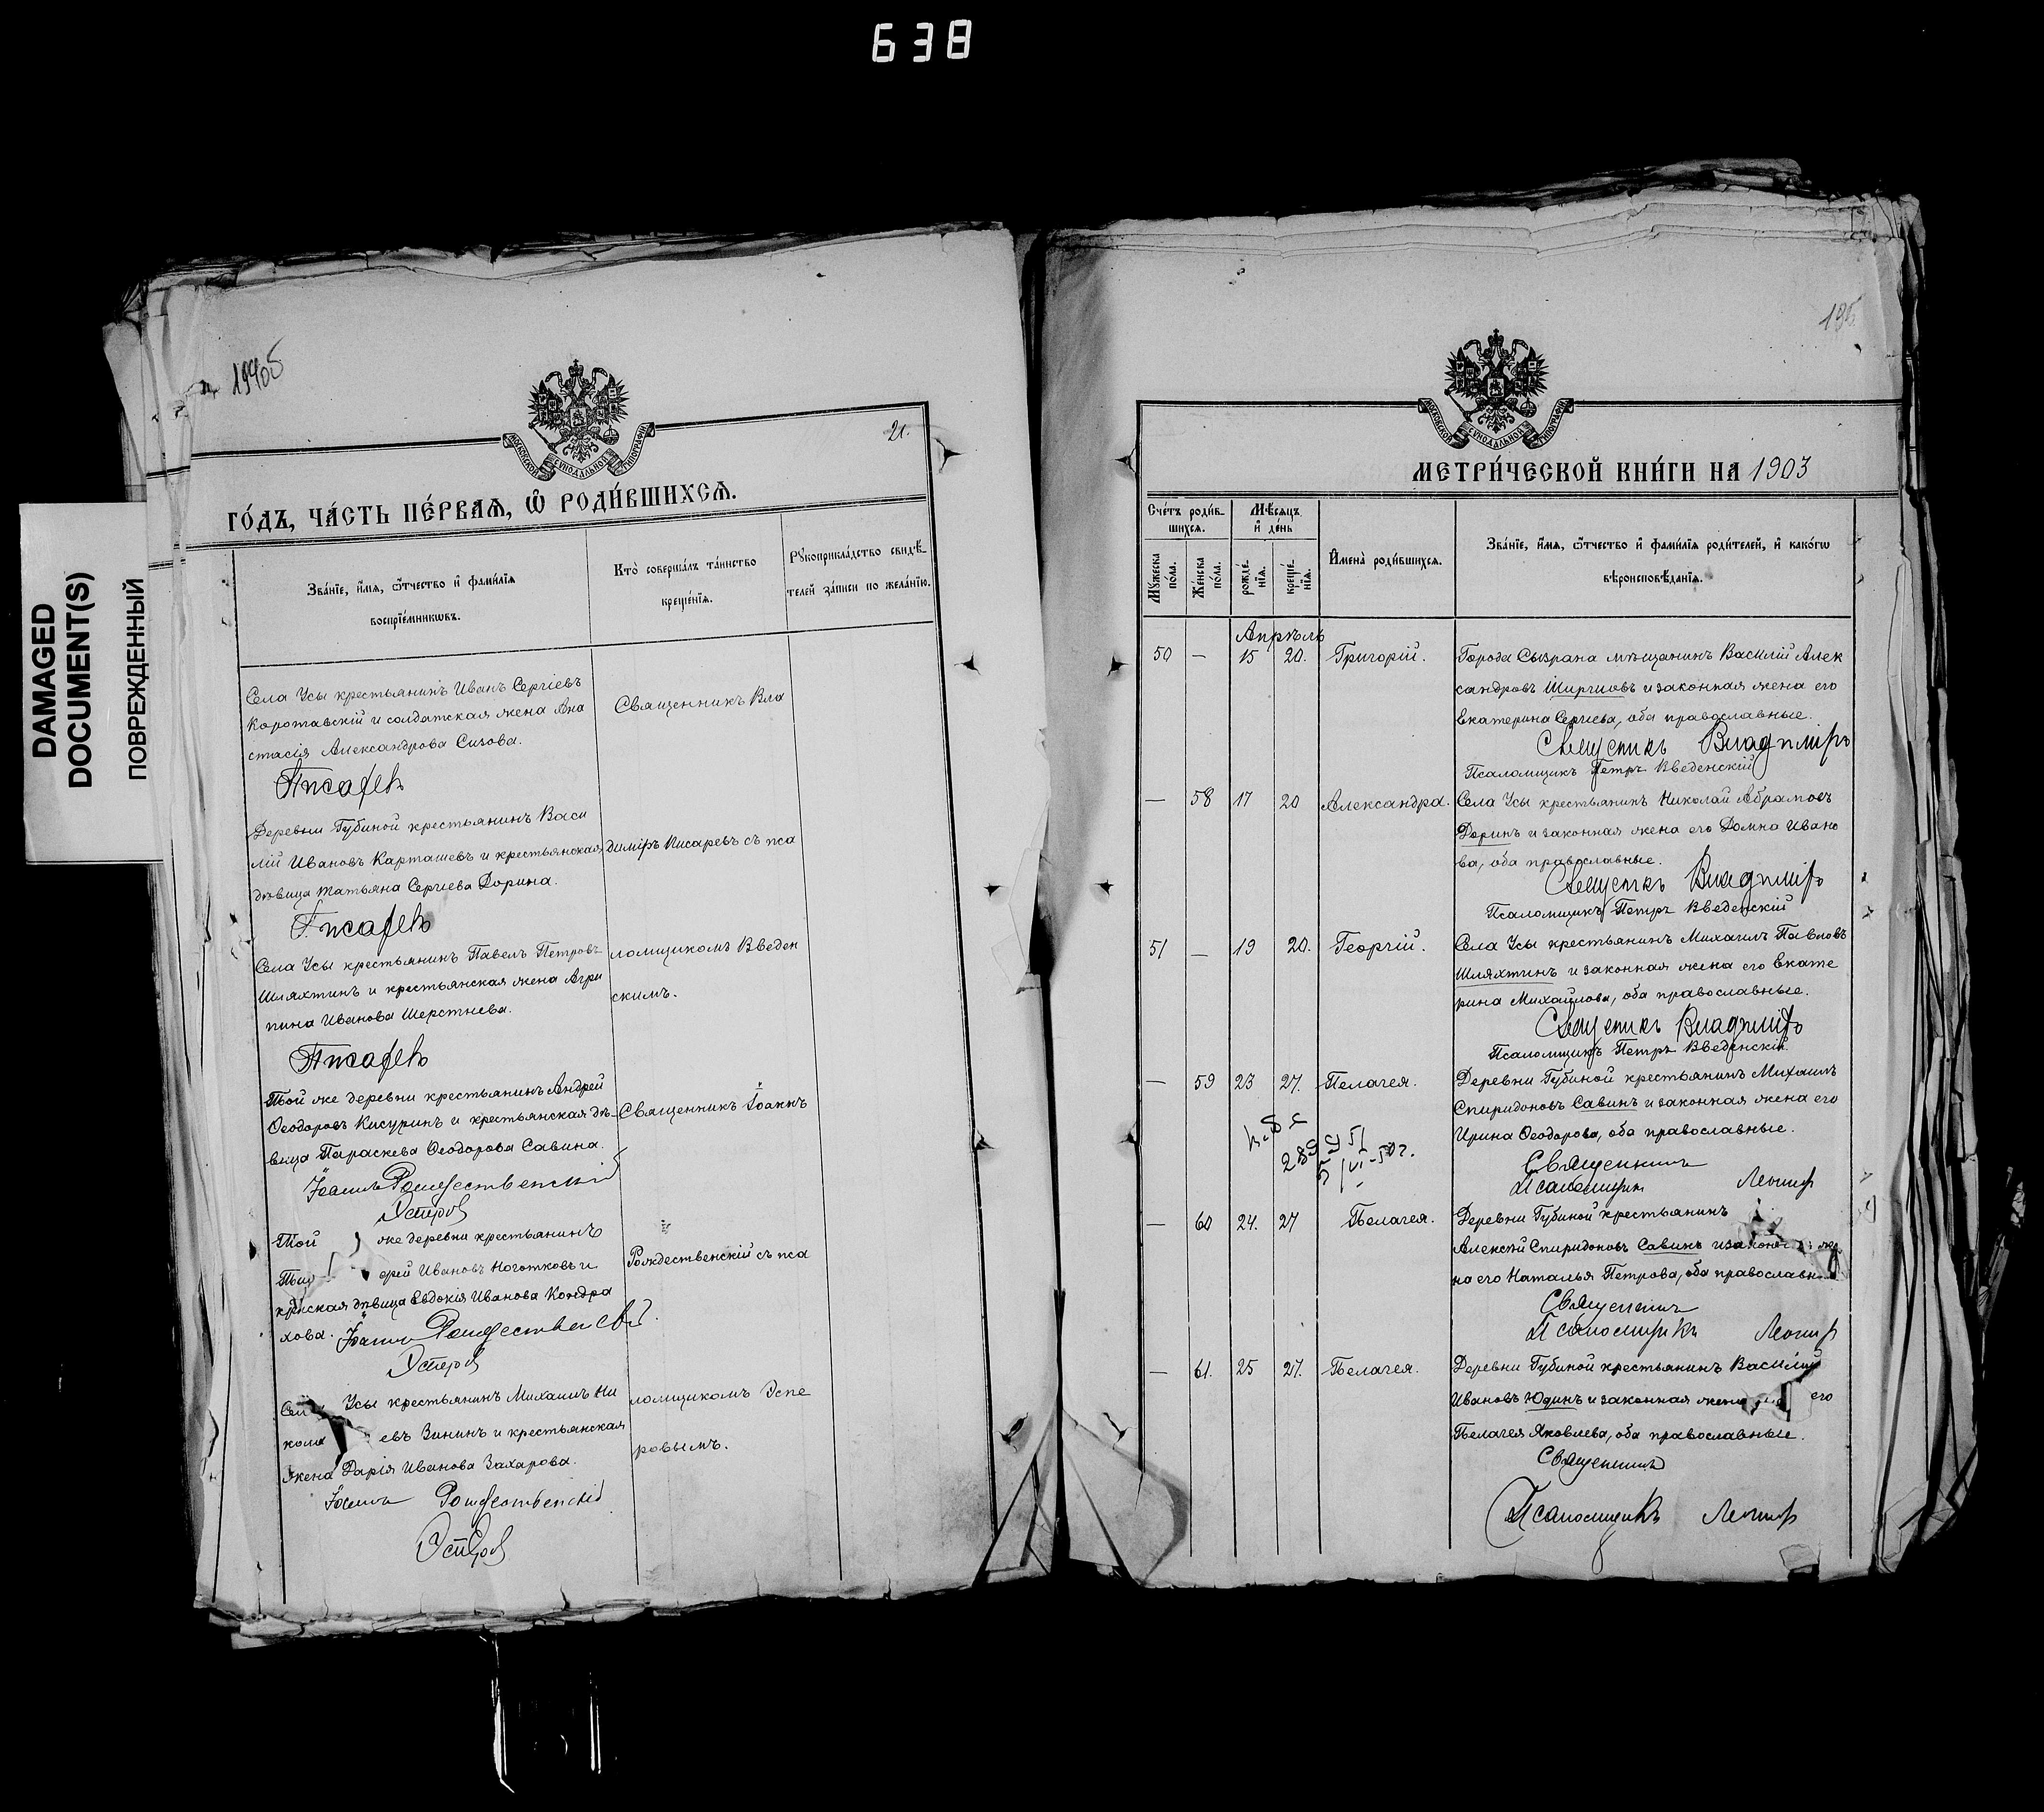 638
DAMAGED
DOCUMENT(S)
ПОВРЕЖДЕННЫЙ
194об
21.
МОСКОВСКОЙ СУНОДАЛЬНОЙ ТИПОГРАФІИ
ГО́ДЪ, ЧА́СТЬ ПЕ́РВАѦ, Ѡ҆ РОДИ́ВШИХСѦ.
Зва́нїе, и҆́мѧ, ѻ҆́тчество и҆ фами́лїѧ
воспрїе́мникѡвъ.
Кто̀ соверша́лъ та́инство
креще́нїѧ.
Рꙋкоприкла́дство свидѣ́-
телей за́писи по жела́нїю.
Села Усы крестьянинъ Иванъ Сергіевъ
Коротавскій и солдатская жена Ана
стасія Александрова Сизова.
Писаревъ
Деревни Губиной крестьянинъ Васи
лій Ивановъ Карташевъ и крестьянская
дѣвица Татьяна Сергіева Дорина.
Писаревъ
Села Усы крестьянинъ Павелъ Петровъ
Шляхтинъ и крестьянская жена Агри
пина Иванова Шерстнева.
Писаревъ
Той же деревни крестьянинъ Андрей
Ѳеодоровъ Кисуринъ и крестьянская дѣ-
вица Параскева Ѳеодорова Савина.
Іоаннъ Рождественскій
Эсперов
Той же деревни крестьянинъ
ѳей Ивановъ Ноготковъ и
крнская дѣвица Евдокія Иванова Кондра
хова. Іоаннъ Рождественскій
Эсперов
Села Усы крестьянинъ Михаилъ Ни
кола евъ Зининъ и крестьянская
жена Дарія Иванова Захарова.
Іоаннъ Рождественскій
Эсперов
Священникъ Вла
диміръ Писаревъ съ пса
ломщикомъ Введен
скимъ.
Священникъ Іоаннъ
Рождественскій съ пса
ломщикомъ Эспе
ровымъ.
195
МОСКОВСКОЙ СУНОДАЛЬНОЙ ТИПОГРАФІИ
МЕТРИ́ЧЕСКОЙ КНИ́ГИ НА 1903
Сче́тъ роди́в-
шихсѧ.
Мꙋ́жеска
по́ла.
Же́нска
по́ла.
Мѣ́сѧцъ
и҆ де́нь
рожде́-
нїѧ.
креще́-
нїѧ.
И҆мена̀ роди́вшихсѧ.
Зва́нїе, и҆́мѧ, ѻ҆́тчество и҆ фами́лїѧ роди́телей, и҆ како́гѡ
вѣроисповѣ́данїѧ.
Апрѣль
50 — 15 20. Григорій. Города Сызрана мѣщанинъ Василій Алек
сандровъ Ширшовъ и законная жена его
Екатерина Сергіева, оба православные.
Священникъ Владиміръ
Псаломщикъ Петръ Введенскій
— 58 17 20 Александра. Села Усы крестьянинъ Николай Абрамовъ
Доринъ и законная жена его Домна Ивано
ва, оба православные.
Священникъ Владиміръ
Псаломщикъ Петръ Введенскій
51 — 19 20. Георгій. Села Усы крестьянинъ Михаилъ Павловъ
Шляхтинъ и законная жена его Екате
рина Михайлова, оба православные.
Священникъ Владиміръ
Псаломщикъ Петръ Введенскій.
— 59 23 27. Пелагея. Деревни Губиной крестьянинъ Михаилъ
Спиридоновъ Савинъ и законная жена его
Ирина Ѳеодорова, оба православные.
Священникъ
Псаломщикъ Леонид
— 60 24. 27 Пелагея. Деревни Губиной крестьянинъ
Алексѣй Спиридоновъ Савинъ и законн же
на его Наталья Петрова, оба православн
Священникъ
Псаломщикъ Леонид
— 61. 25 27. Пелагея. Деревни Губиной крестьянинъ Василій
Ивановъ Юдинъ и законная жена его
Пелагея Яковлева, оба православные.
Священникъ
Псаломщикъ Леонид